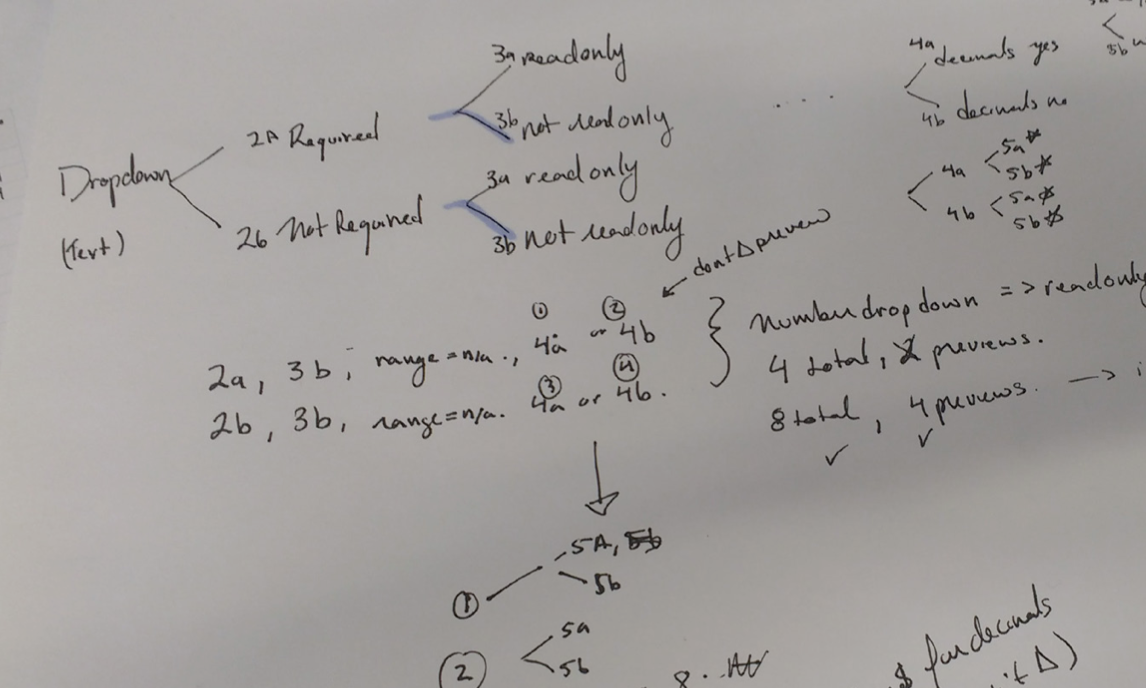 3a readonly
4a decimals yes
5b
2A Required
3b not readonly
4b decimals no
Dropdown
3a readonly
4a
5a
5b
(Text)
2b Not Required
3b not readonly
4b
5a
5b
dont Δ preview
① ②
2a, 3b, range = n/a., 4a or 4b
number dropdown => readonly
③ ④
2b, 3b, range = n/a. 4a or 4b.
4 total, 2 previews.
8 total, 4 previews. →
✓ ✓
5A, 5b
① 5b
5a
② 5b
8
$ for decimals
Δ)